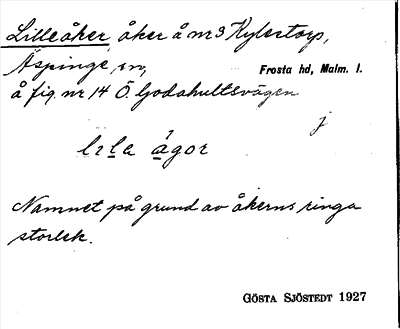 Lilleåker, åker å nr 3 Kylestorp,
Äspinge sn,
Frosta hd, Malm. l.
å fig. nr 14 Ö. Ljodahultsvägen
lɪla ågor
Namnet på grund av åkerns ringa
storlek.
GÖSTA SJÖSTEDT 1927